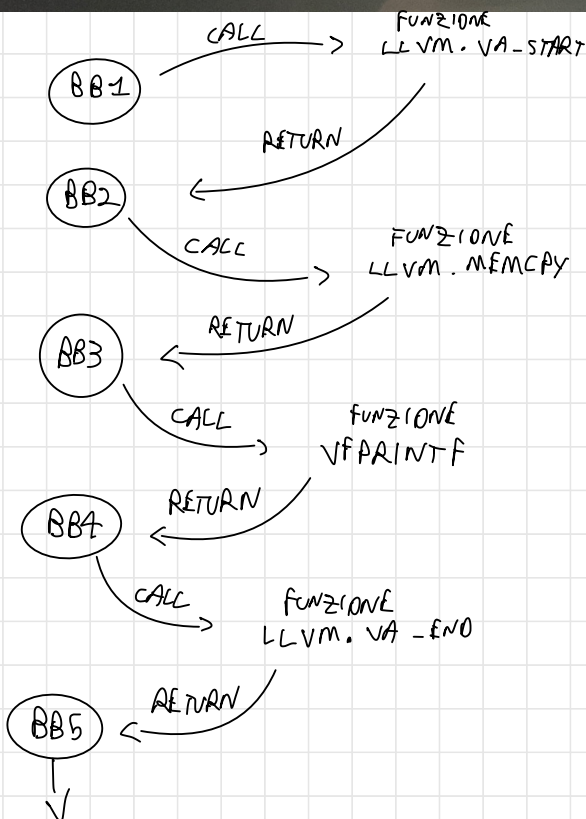 FUNZIONE
CALL
LLVM. VA_START
BB1
RETURN
BB2
FUNZIONE
CALL
LLVM. MEMCPY
RETURN
BB3
CALL
FUNZIONE
VFPRINTF
RETURN
BB4
CALL
FUNZIONE
LLVM. VA_END
RETURN
BB5